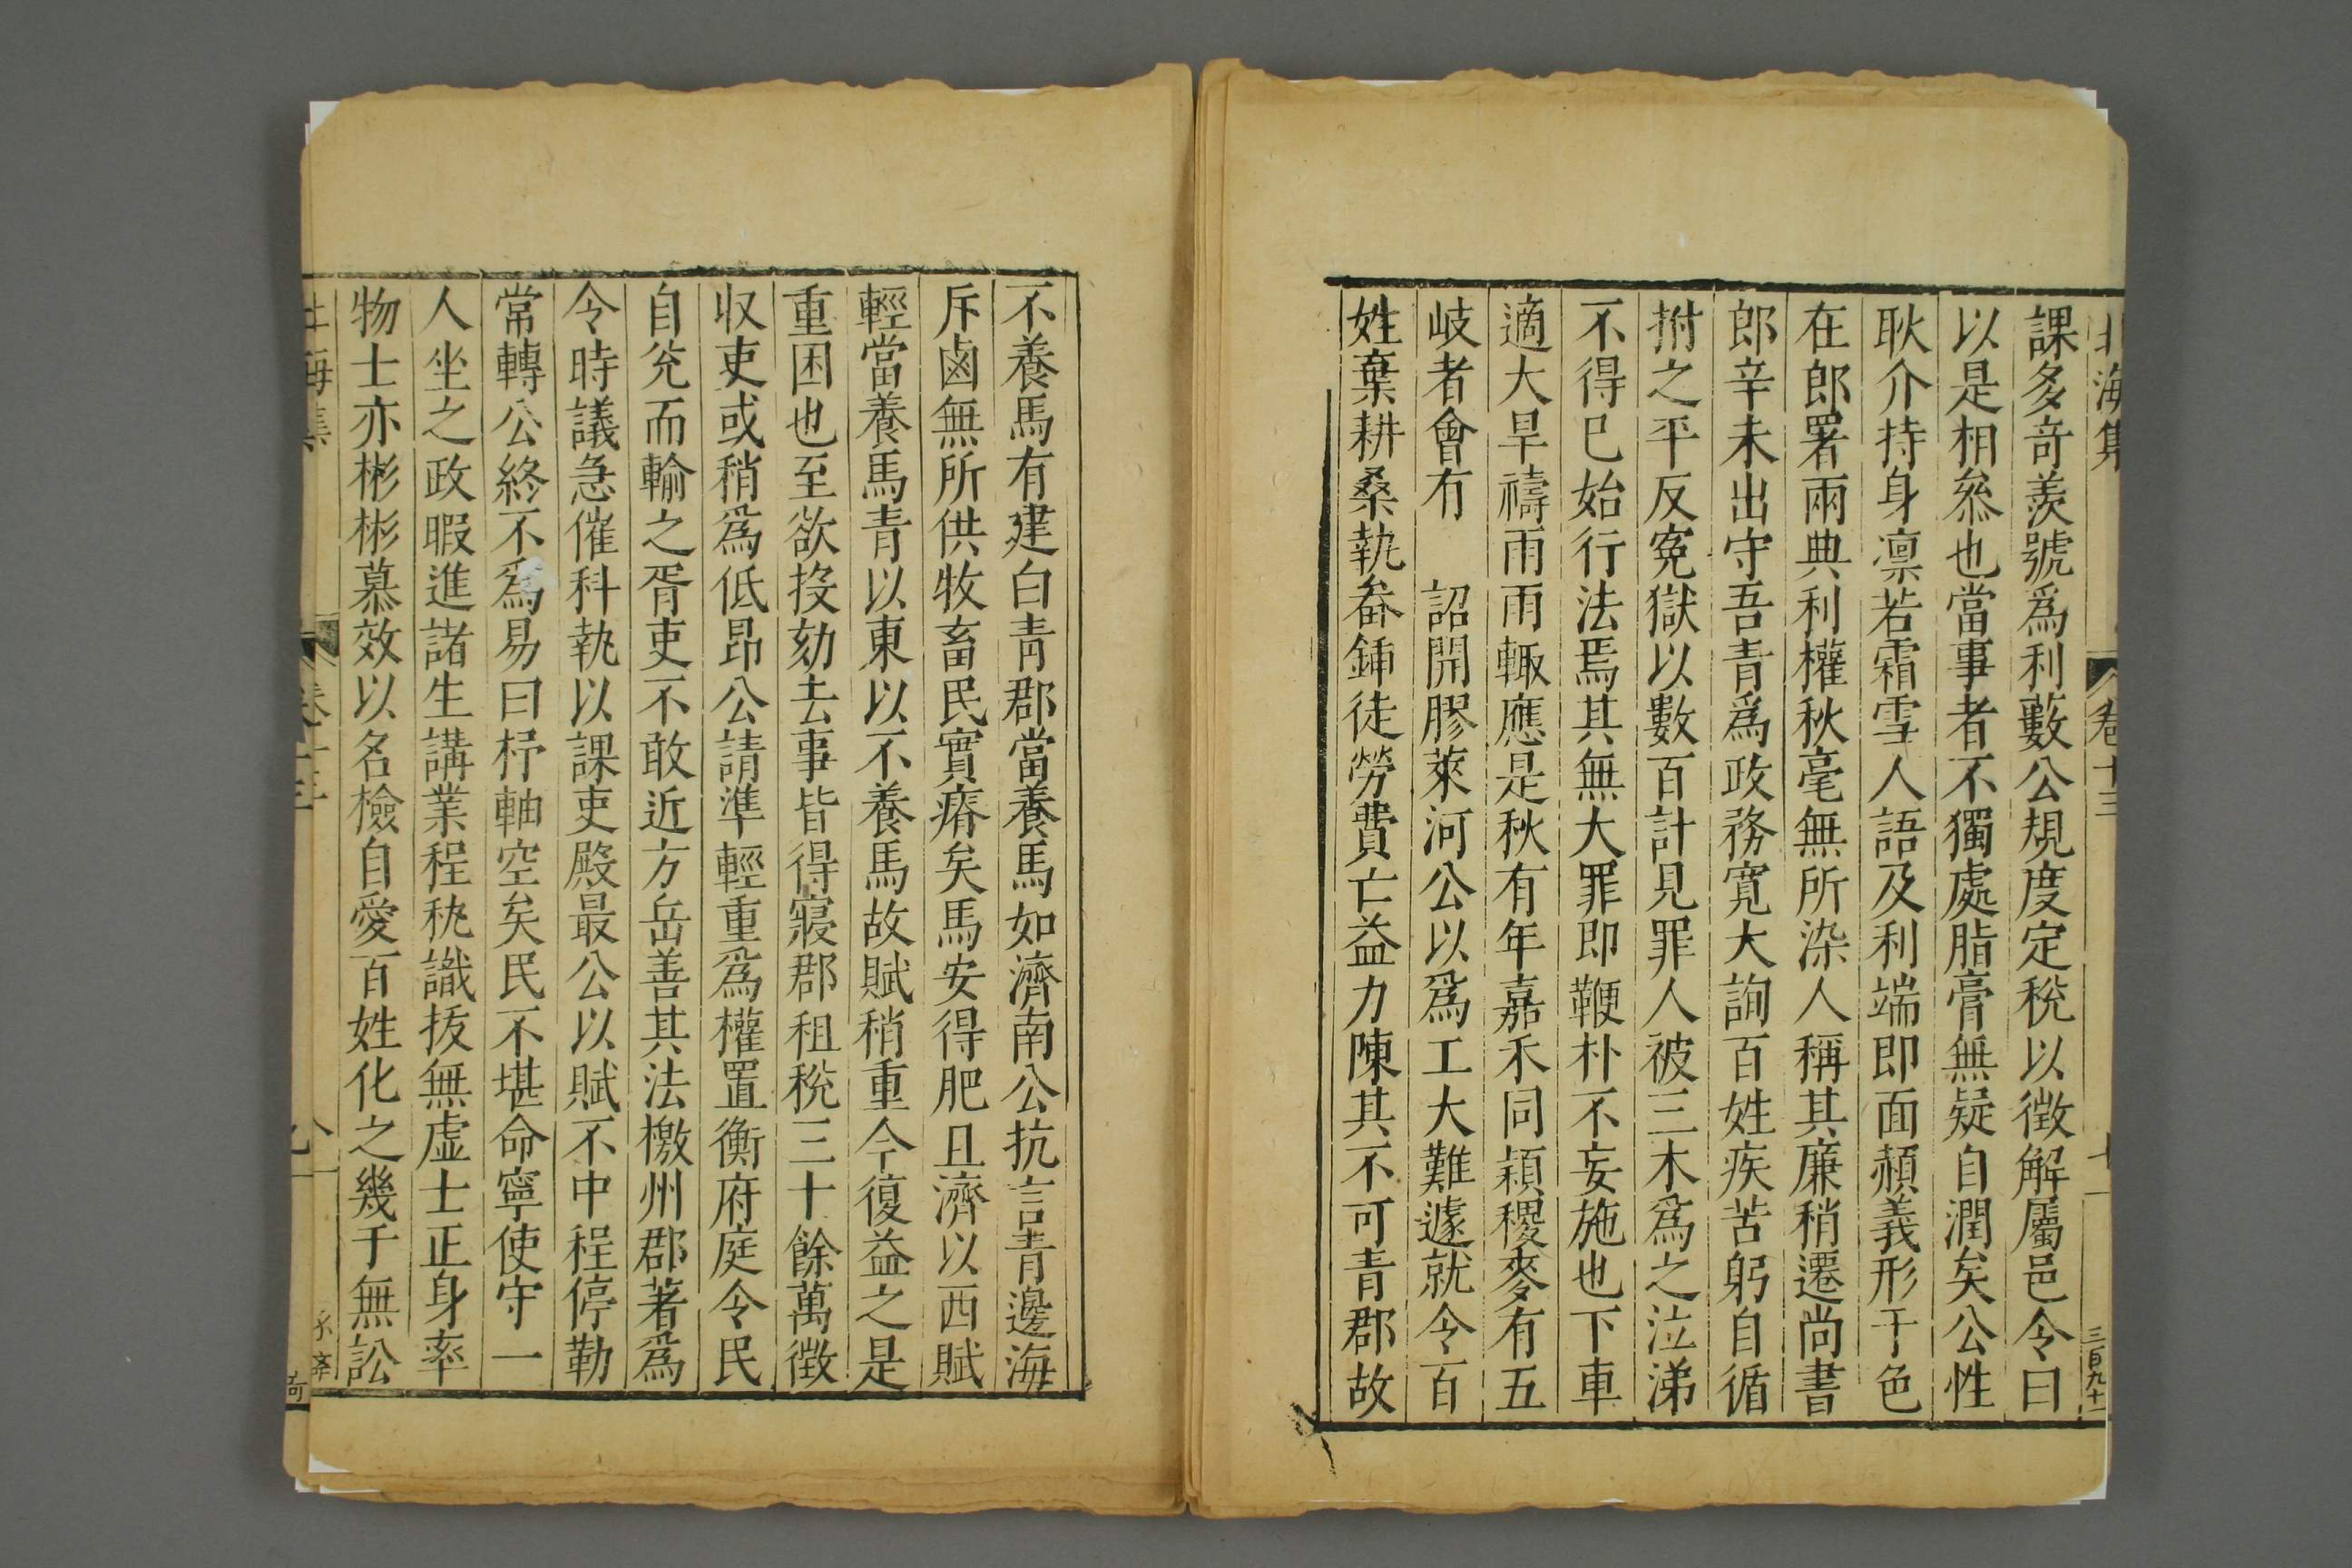 北海集 卷十三 三百九十一
課多奇羨號爲利藪公規度定稅以徵解屬邑令曰
以是相叅也當事者不獨處脂膏無疑自潤矣公性
耿介持身凛若霜雪人語及利端即面頳義形于色
在郎署兩典利權秋毫無所染人稱其廉稍遷尚書
郎辛未出守吾青爲政務寬大詢百姓疾苦躬自循
拊之平反寃獄以數百計見罪人被三木爲之泣涕
不得巳始行法焉其無大罪即鞭朴不妄施也下車
適大旱禱雨雨輙應是秋有年嘉禾同穎稷麥有五
岐者會有 詔開膠萊河公以爲工大難遽就令百
姓棄耕桑執畚鍤徒勞費亡益力陳其不可青郡故
不養馬有建白青郡當養馬如濟南公抗言青邊海
斥鹵無所供牧畜民實瘠矣馬安得肥且濟以西賦
輕當養馬青以東以不養馬故賦稍重今復益之是
重困也至欲投劾去事皆得寢郡租稅三十餘萬徵
収吏或稍爲低昂公請準輕重爲權置衡府庭令民
自兊而輸之胥吏不敢近方岳善其法檄州郡著爲
令時議急催科執以課吏殿最公以賦不中程停勒
常轉公終不爲易曰杼軸空矣民不堪命寧使守一
人坐之政暇進諸生講業程秇識抜無虚士正身率
物士亦彬彬慕效以名檢自愛百姓化之幾于無訟